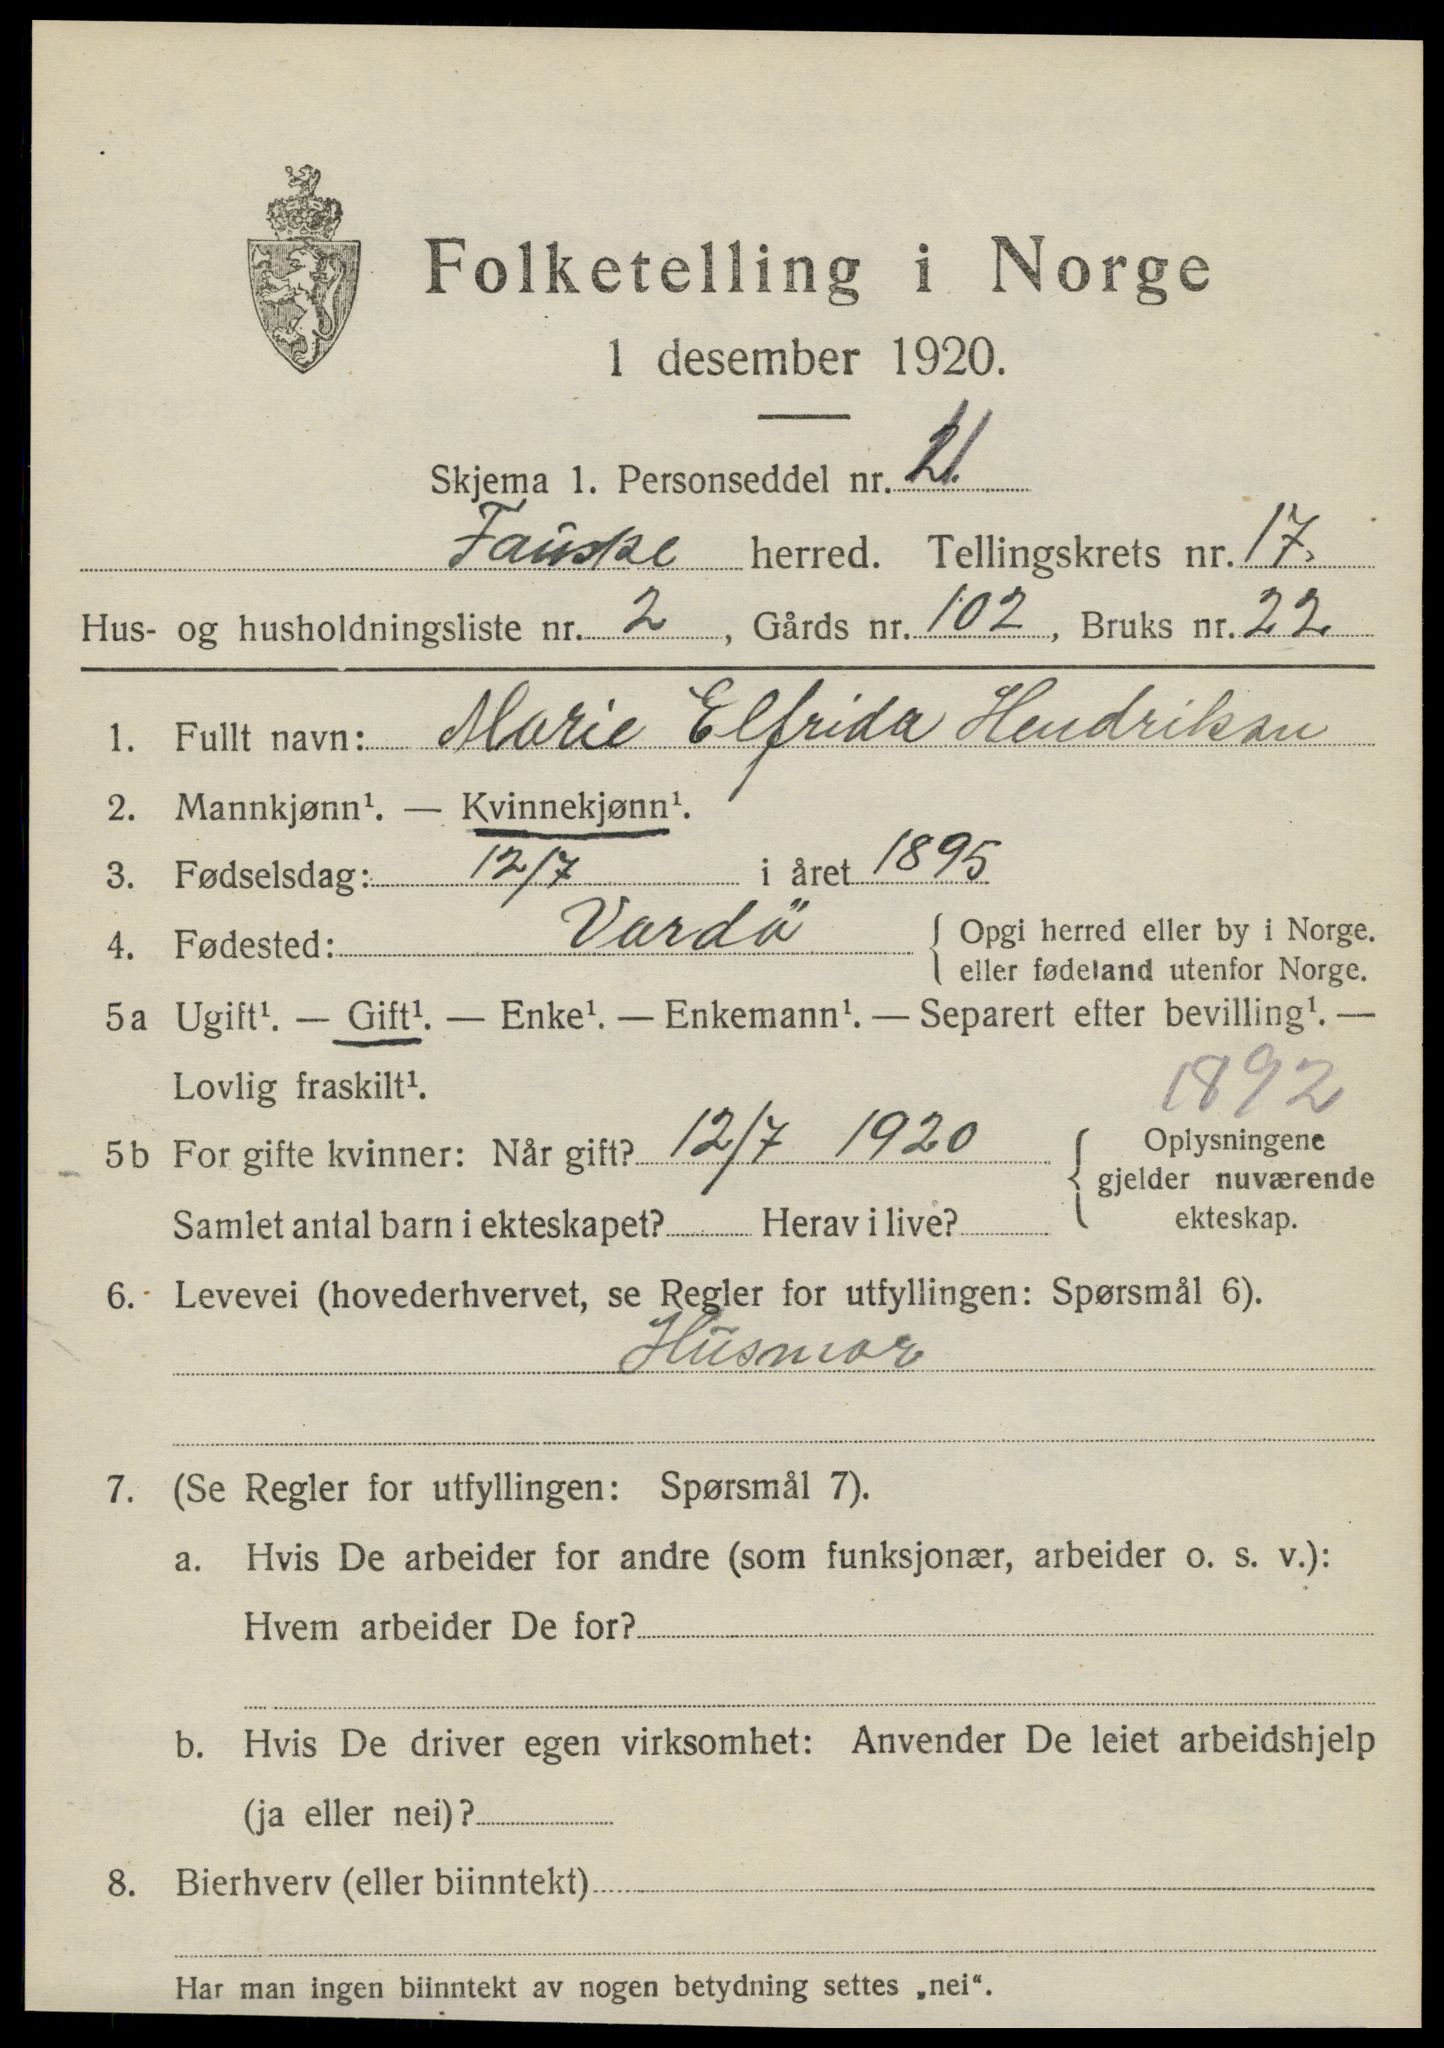 Folketelling i Norge
1 desember 1920.
Skjema 1. Personseddel nr. 21.
Fauske herred. Tellingskrets nr. 17.
Hus- og husholdningsliste nr. 2, Gårds nr. 102, Bruks nr. 22.
1. Fullt navn: Marie Elfrida Hendriksen
2. Mannkjønn¹. — Kvinnekjønn¹.
3. Fødselsdag: 12/7 i året 1895
4. Fødested: Vardö { Opgi herred eller by i Norge.
eller fødeland utenfor Norge.
5a Ugift¹. — Gift¹. — Enke¹. — Enkemann¹. — Separert efter bevilling¹. —
Lovlig fraskilt¹. 1892
5b For gifte kvinner: Når gift? 12/7 1920 { Oplysningene
gjelder nuværende
Samlet antal barn i ekteskapet? Herav i live? ekteskap.
6. Levevei (hovederhvervet, se Regler for utfyllingen: Spørsmål 6).
Husmor
7. (Se Regler for utfyllingen: Spørsmål 7).
a. Hvis De arbeider for andre (som funksjonær, arbeider o. s. v.):
Hvem arbeider De for?
b. Hvis De driver egen virksomhet: Anvender De leiet arbeidshjelp
(ja eller nei)?
8. Bierhverv (eller biinntekt)
Har man ingen biinntekt av nogen betydning settes „nei“.